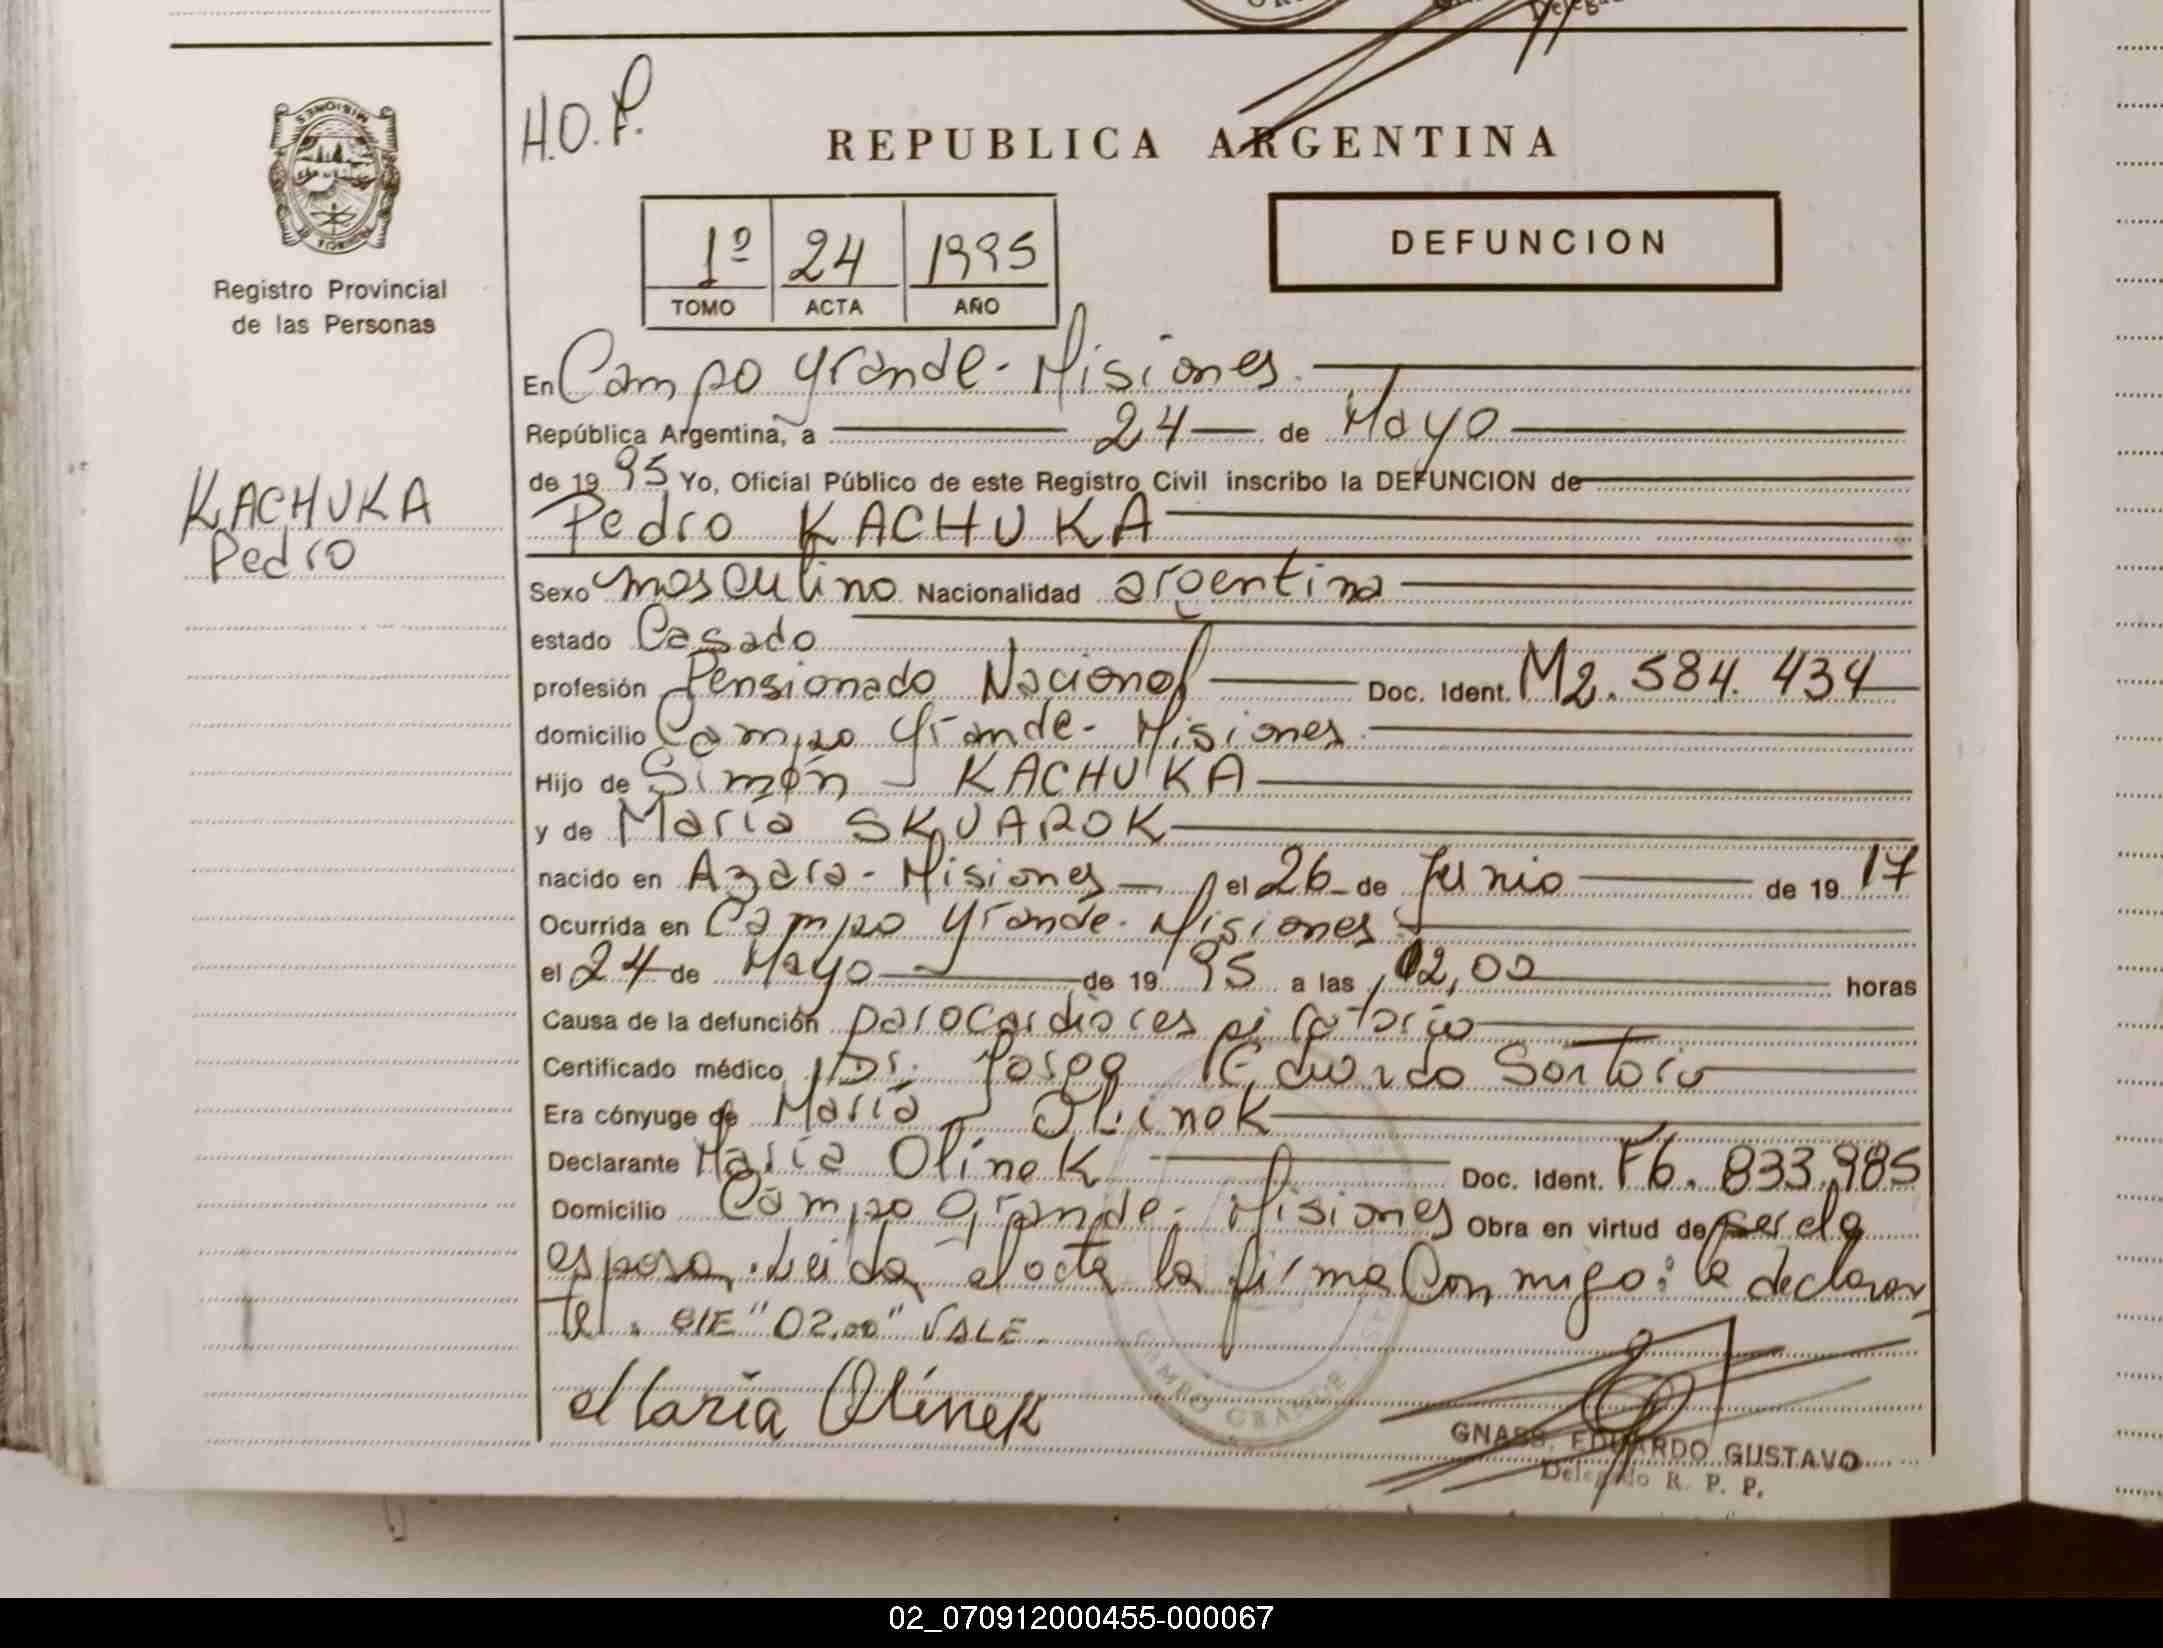 H.O.P.
REPUBLICA ARGENTINA
MISIONES
1º 24 1995
TOMO ACTA AÑO
DEFUNCION
Registro Provincial
de las Personas
KACHUKA
Pedro
En Campo Grande - Misiones.
República Argentina, a 24 de Mayo
de 19 95 Yo, Oficial Público de este Registro Civil inscribo la DEFUNCION de
Pedro KACHUKA
Sexo masculino Nacionalidad argentina
estado Casado
profesión Pensionado Nacional Doc. Ident. M2.584.434
domicilio Campo Grande - Misiones.
Hijo de Simón KACHUKA
y de María SKUAROK
nacido en Azara - Misiones el 26 de Junio de 19 17
Ocurrida en Campo Grande - Misiones.
el 24 de Mayo de 19 95 a las 02,00 horas
Causa de la defunción parocardiorespiratorio
Certificado médico Dr. Jorge Eduardo Sartorio
Era cónyuge de María Olinek
Declarante María Olinek Doc. Ident. F6.833.985
Domicilio Campo Grande - Misiones Obra en virtud de ser ela
esposa. Leida el acta la firma conmigo: la declaran
te. E/E "02,00" VALE.
María Olinek
CAMPO GRANDE
GNASS, EDUARDO GUSTAVO
Delegado R. P. P.
02_070912000455-000067